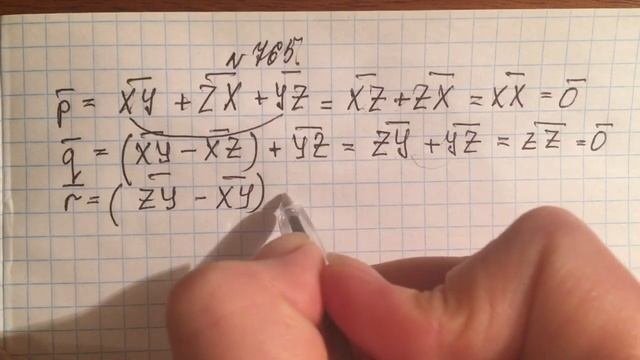 № 765.
p̄ = X̅Y̅ + Z̅X̅ + Y̅Z̅ = X̅Z̅ + Z̅X̅ = X̅X̅ = 0̄
q̄ = (X̅Y̅ - X̅Z̅) + Y̅Z̅ = Z̅Y̅ + Y̅Z̅ = Z̅Z̅ = 0̄
r̄ = (Z̅Y̅ - X̅Y̅)